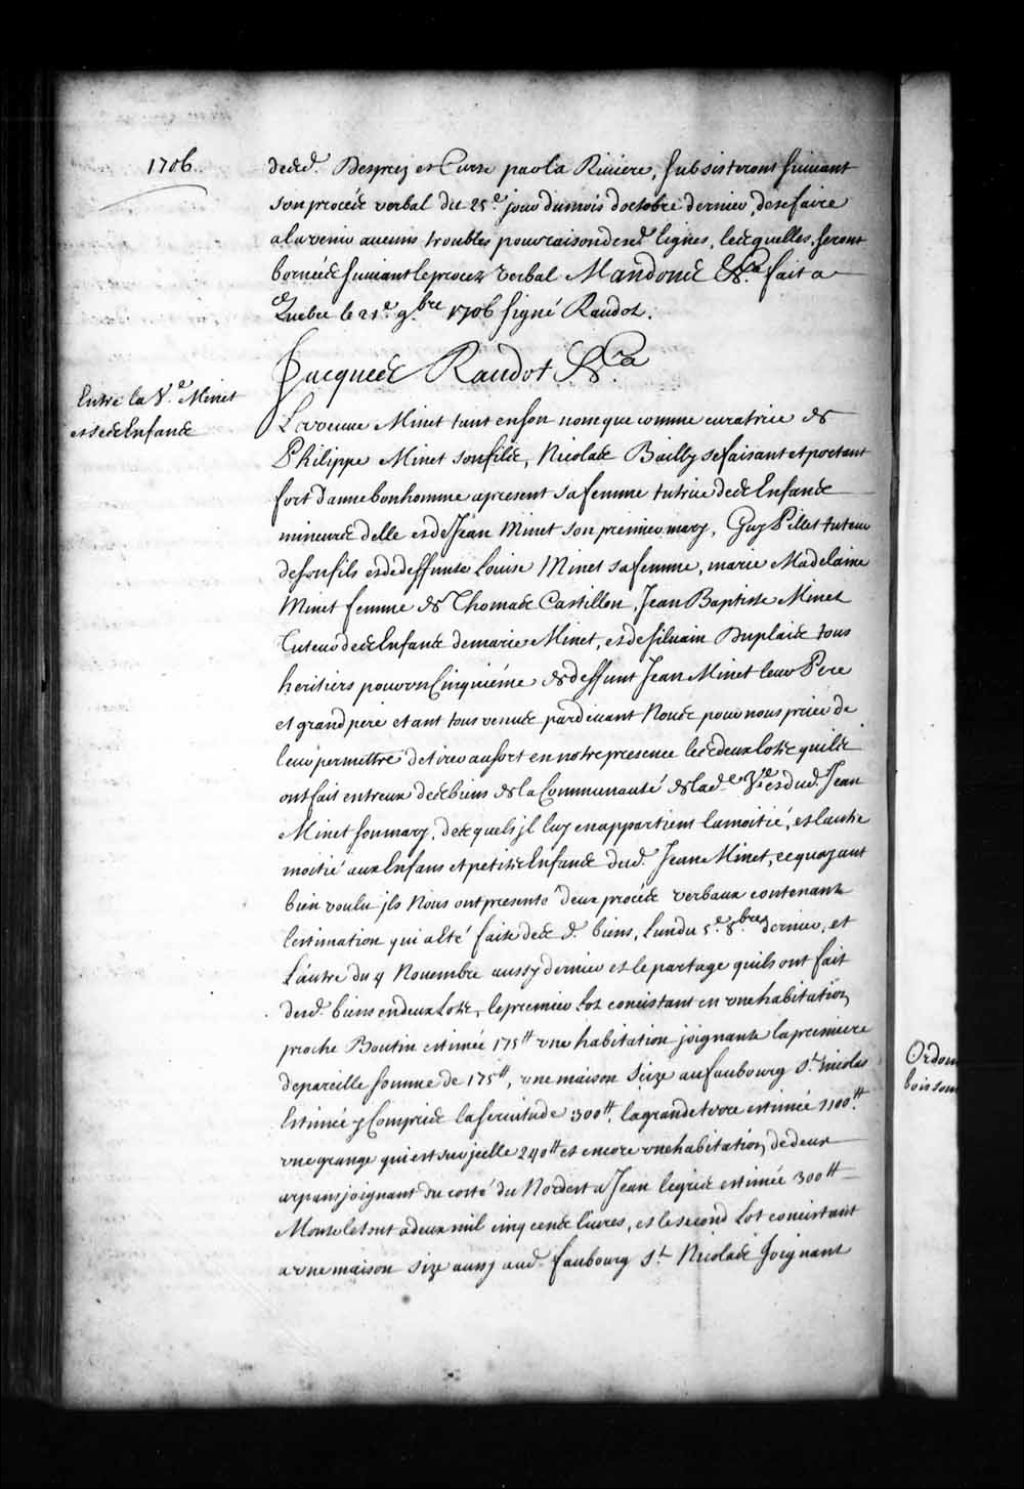 1706
desd. Desprez et Cursé par la Riviere, Subsisteront suivant
son procés verbal du 25e. jour du mois d'octobre dernier, de se faire
a l'avenir aucuns troubles pour raison desd. lignes, lesquelles seront
bornées suivant le procez verbal Mandons &ca fait a
Quebec le 21e. 9bre 1706 signé Raudot.
Jacques Raudot &ca
Entre la Ve. Minet
et ses Enfans
La veuve Minet tant en son nom que comme curatrice de
Philippe Minet son fils, Nicolas Bailly se faisant et portant
fort d'anne bonhomme apresent sa femme tutrice des Enfans
mineurs d'elle et de Jean Minet son premier mary, Guy Pillet tuteur
de son fils et de deffunte Louise Minet sa femme, marie Madelaine
Minet femme de Thomas Castillon, Jean Baptiste Minet
Tuteur des Enfans de marie Minet, et de silvain Duplais tous
heritiers pour un Cinquiéme de deffunt Jean Minet leur Pere
et grand pere etant tous venus pardevant Nous pour nous prier de
leur permettre de tirer au sort en notre presence les deux lots quils
ont fait entreux des biens de la Communauté de lade. Ve. et dud. Jean
Minet son mary, desquels jl luy en appartient la moitié, et l'autre
moitié aux Enfans et petits Enfans dud. Jean Minet, ce quayant
bien voulu jls Nous ont presenté deux procés verbaux contenant
l'estimation qui a eté faite desd. biens, l'un du 5e. 8bre dernier, et
L'autre du 9 Novembre aussy dernier et le partage quils ont fait
desd. biens en deux Lots, le premier lot consistant en une habitation
proche Boutin estimée 175tt une habitation joignante la premiere
de pareille somme de 175tt, une maison size au faubourg St. nicolas
Estimée y Compris la servitude 300tt. la grande terre estimée 1100tt.
une grange qui est sur jcelle 240tt et encore une habitation de deux
arpans joignant du costé du Nordest a Jean legris estimée 300tt
Monte le tout a deux mil cinq cens livres, et le second Lot consistant
a une maison size aussy aud. faubourg St. Nicolas Joignant
Ordon
bois